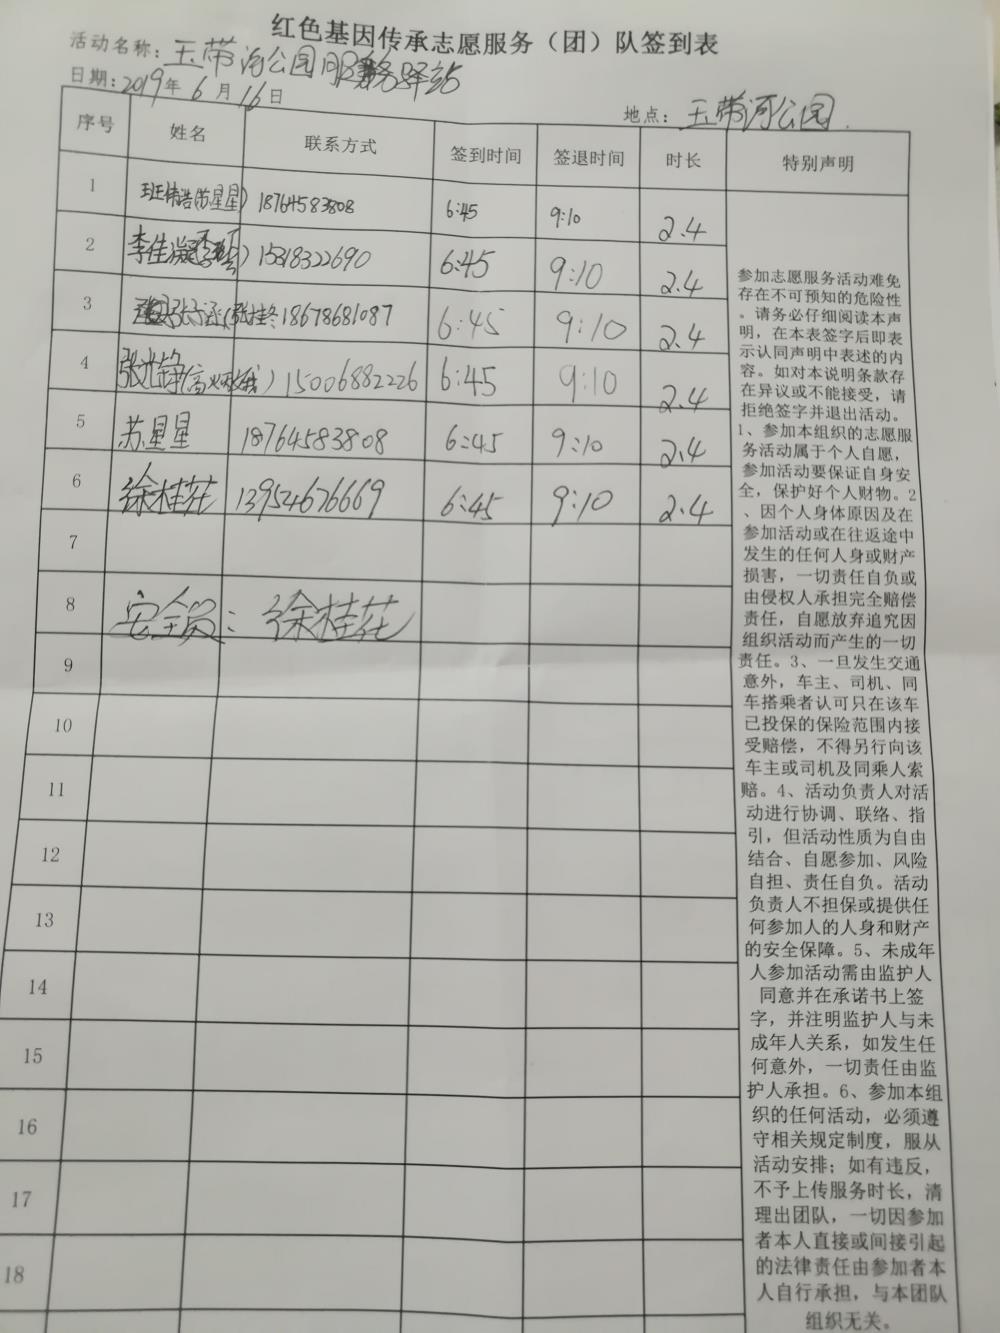 红色基因传承志愿服务（团）队签到表
活动名称：玉带河公园服务驿站
日期：2019年6月16日
地点：玉带河公园.
序号 姓名 联系方式 签到时间 签退时间 时长 特别声明
1 班伟浩(苏星星) 18764583808 6:45 9:10 2.4
2 李佳凝 ) 15318322690 6:45 9:10 2.4
3 (张桂冬 18678681087 6:45 9:10 2.4
4 ) 15006882226 6:45 9:10 2.4
5 苏星星 18764583808 6:45 9:10 2.4
6 徐桂花 13954676669 6:45 9:10 2.4
7
8 安全员：徐桂花
9
10
11
12
13
14
15
16
17
18
参加志愿服务活动难免
存在不可预知的危险性
。请务必仔细阅读本声
明，在本表签字后即表
示认同声明中表述的内
容。如对本说明条款存
在异议或不能接受，请
拒绝签字并退出活动。
1、参加本组织的志愿服
务活动属于个人自愿，
参加活动要保证自身安
全，保护好个人财物。2
、因个人身体原因及在
参加活动或在往返途中
发生的任何人身或财产
损害，一切责任自负或
由侵权人承担完全赔偿
责任，自愿放弃追究因
组织活动而产生的一切
责任。3、一旦发生交通
意外，车主、司机、同
车搭乘者认可只在该车
已投保的保险范围内接
受赔偿，不得另行向该
车主或司机及同乘人索
赔。4、活动负责人对活
动进行协调、联络、指
引，但活动性质为自由
结合、自愿参加、风险
自担、责任自负。活动
负责人不担保或提供任
何参加人的人身和财产
的安全保障。5、未成年
人参加活动需由监护人
同意并在承诺书上签
字，并注明监护人与未
成年人关系，如发生任
何意外，一切责任由监
护人承担。6、参加本组
织的任何活动，必须遵
守相关规定制度，服从
活动安排；如有违反，
不予上传服务时长，清
理出团队，一切因参加
者本人直接或间接引起
的法律责任由参加者本
人自行承担，与本团队
组织无关。